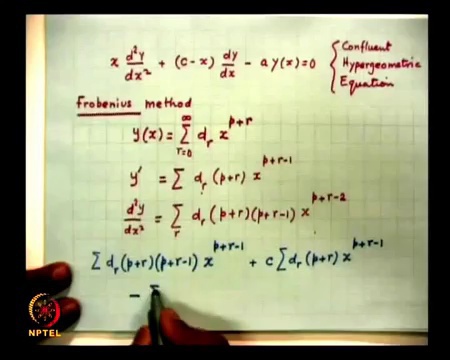 x d²y/dx² + (c-x) dy/dx - a y(x) = 0 { Confluent Hypergeometric Equation
Frobenius method
y(x) = ∑_{r=0}^{∞} d_r x^{p+r}
y' = ∑ d_r (p+r) x^{p+r-1}
d²y/dx² = ∑_r d_r (p+r)(p+r-1) x^{p+r-2}
∑ d_r (p+r)(p+r-1) x^{p+r-1} + c ∑ d_r (p+r) x^{p+r-1}
-
NPTEL